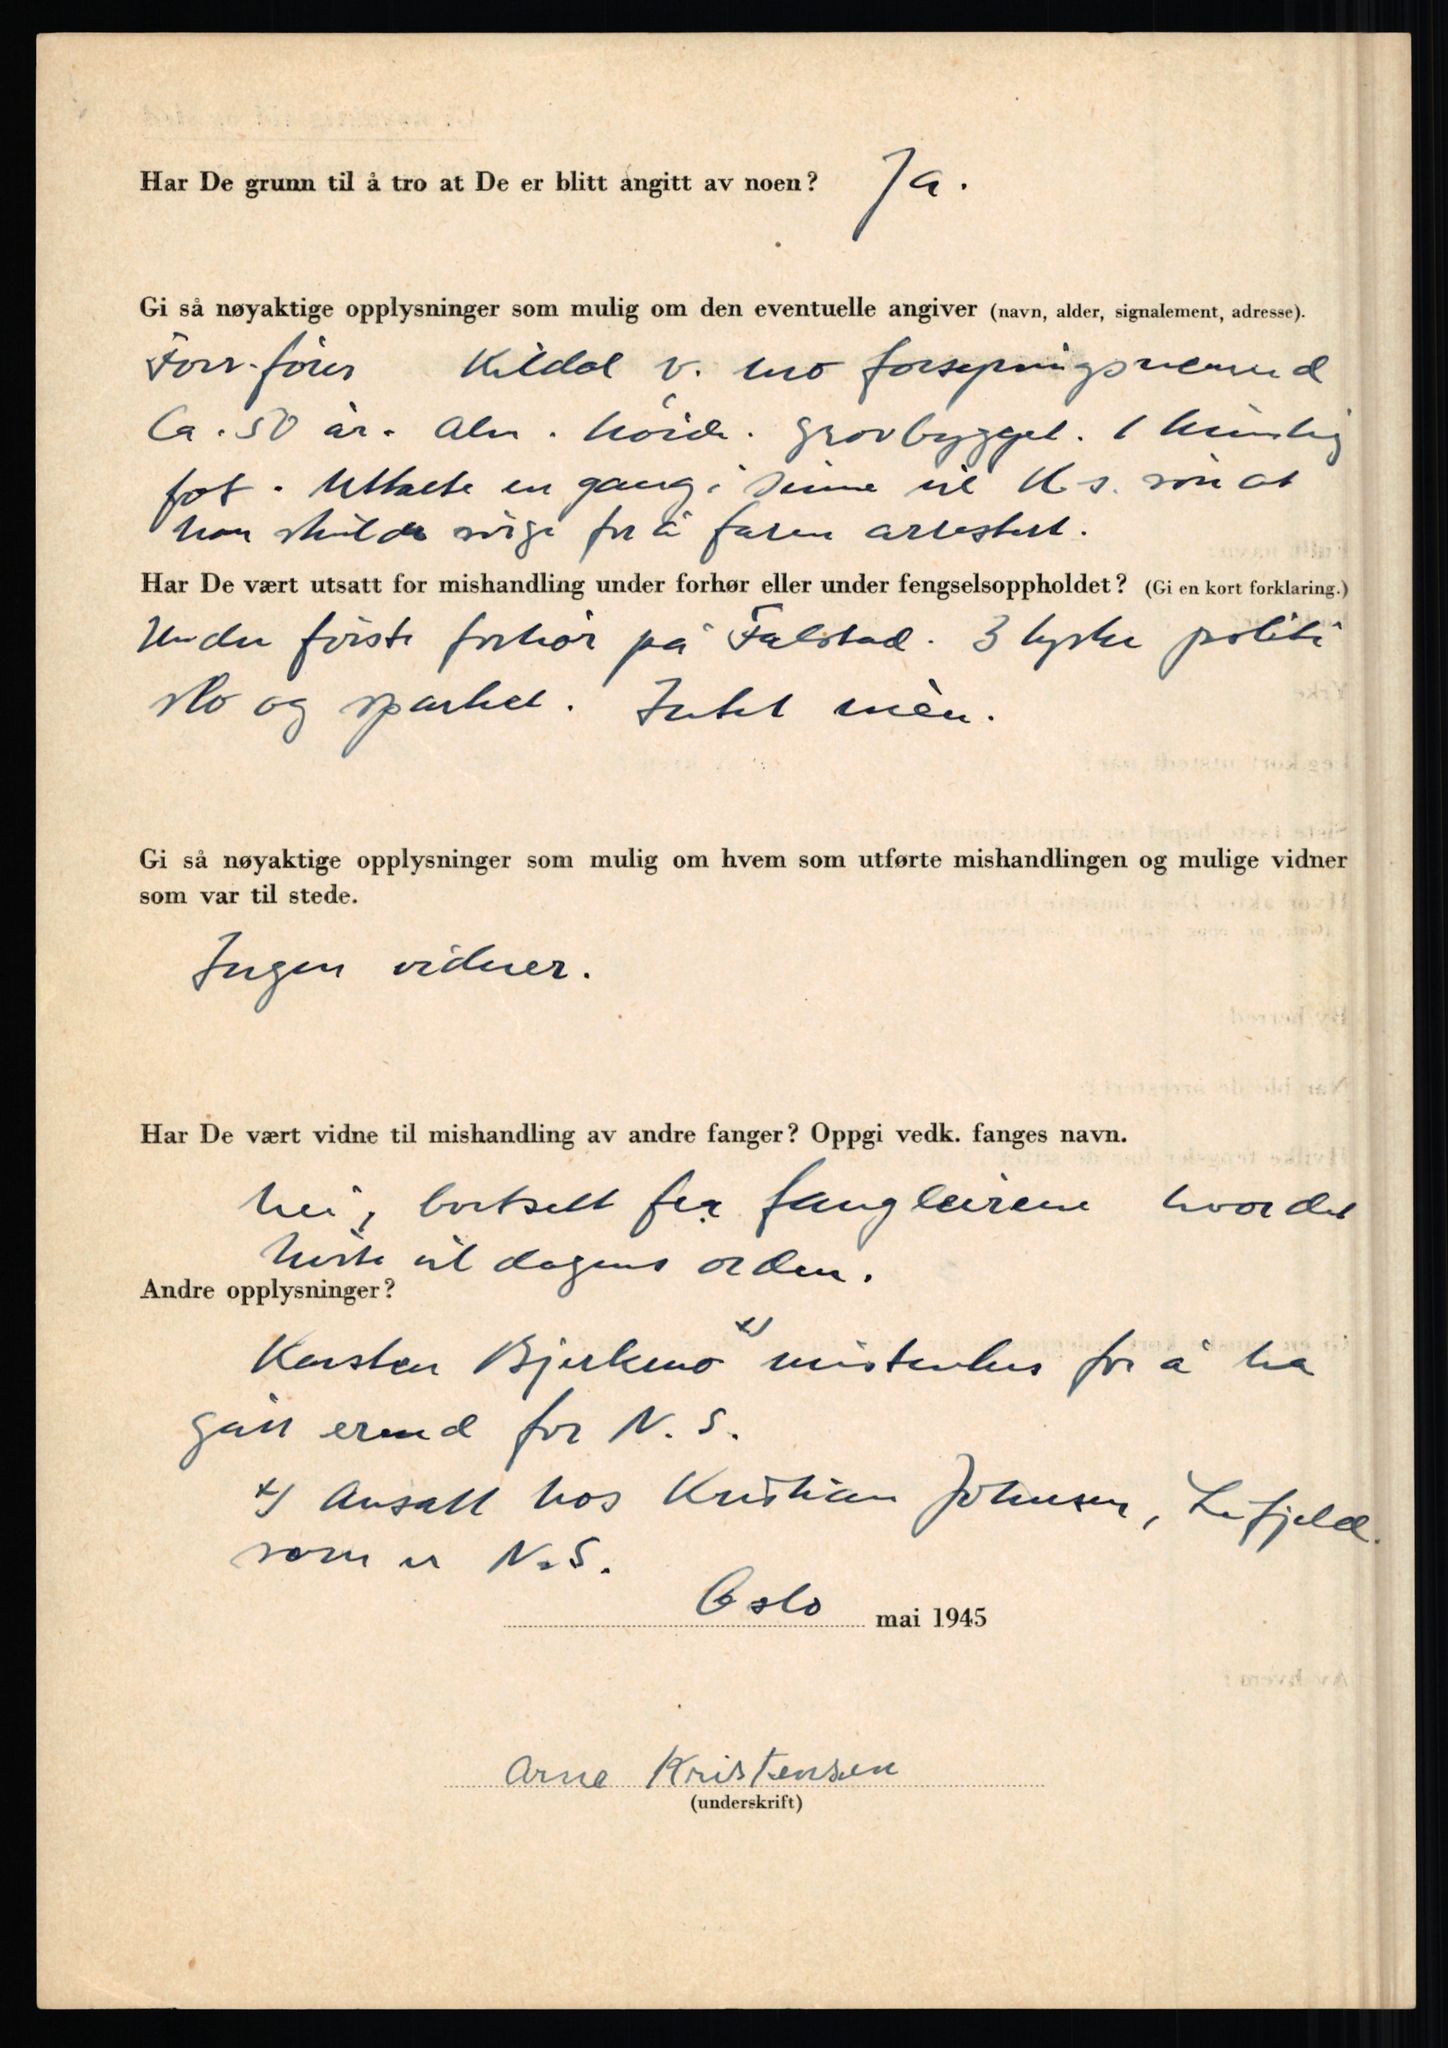 Har De grunn til å tro at De er blitt angitt av noen? Ja.
Gi så nøyaktige opplysninger som mulig om den eventuelle angiver (navn, alder, signalement, adresse).
Forr.fører Kildal v. Mo forsyningsnemnd
Ca. 50 år. Alm. höide. Grovbygget. 1 kunstig
fot. Uttalte en gang i sinne til K-s. sön at
han skulde sörge for å faren arrestert.
Har De vært utsatt for mishandling under forhør eller under fengselsoppholdet? (Gi en kort forklaring.)
Under förste forhör på Falstad. 3 tyske politi
slo og sparket. Intet mèn.
Gi så nøyaktige opplysninger som mulig om hvem som utførte mishandlingen og mulige vidner
som var til stede.
Ingen vidner.
Har De vært vidne til mishandling av andre fanger? Oppgi vedk. fanges navn.
Nei, bortsett fra fangleirene hvor det
hörte til dagens orden.
Andre opplysninger?
Karsten Bjerkmo x) mistenkes for å ha
gått erend for N.S.
x) Ansatt hos Kristian Johnsen,
som er N.S.
Oslo mai 1945
Arne Kristensen
(underskrift)